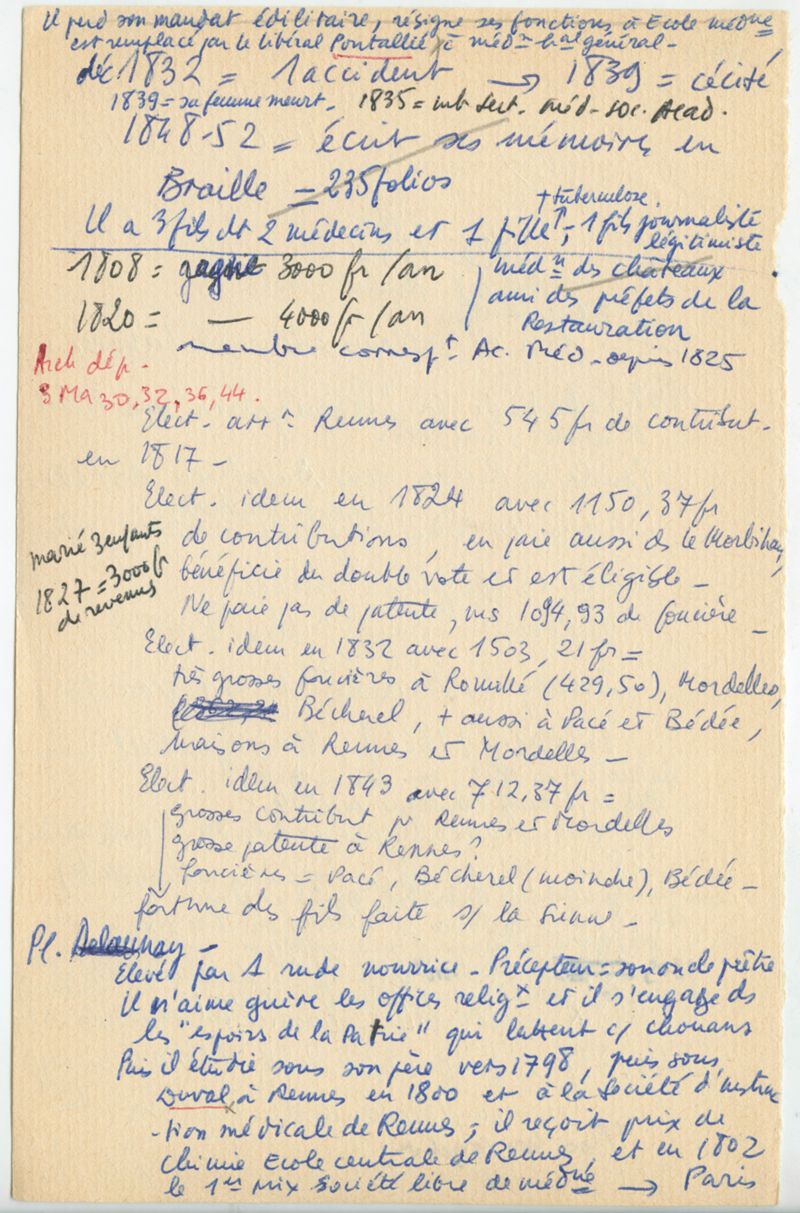 Il perd son mandat édilitaire, résigne ses fonctions à Ecole médne
est remplacé par le libéral Pontallié à méd- général -
déc 1832 = 1 accident → 1839 = cécité
1839 = sa femme meurt. 1835 = mb Sect. méd- soc. Acad.
1848-52 = écrit ses mémoires en
Braille = 235 folios
+ tuberculose.
Il a 3 fils dt 2 médecins et 1 fille ; 1 fils journaliste
légitimiste
1808 = gagne 3000 fr /an
médn des châteaux
1820 = — 4000 fr /an
ami des préfets de la
Restauration
membre correspt Ac. Méd - depuis 1825
Arch dép -
3 Ma 30, 32, 36, 44.
Elect. arrt Rennes avec 545 fr de contribut-
en 1817 -
Elect. idem en 1824 avec 1150,37 fr
de contributions, en paie aussi ds le Morbihan,
marié 3 enfants
1827 = 3000 fr
de revenus
bénéficie du double vote et est éligible -
Ne paie pas de patente, ms 1094,93 de foncière -
Elect. idem en 1832 avec 1503,21 fr =
très grosses foncières à Romillé (429,50), Mordelles,
Bécherel, + aussi à Pacé et Bédée,
maisons à Rennes et Mordelles -
Elect. idem en 1843 avec 712,37 fr =
grosses contribut pr Rennes et Mordelles
grosse patente à Rennes ?
foncières = Pacé, Bécherel (moindre), Bédée -
fortune des fils faite s/ la sienne -
Pl. Delaunay -
Elevé par 1 rude nourrice - Précepteur = son oncle prêtre
Il n'aime guère les offices religx et il s'engage ds
les "espoirs de la Patrie" qui luttent c/ chouans
Puis il étudie sous son père vers 1798, puis sous
Duval, à Rennes en 1800 et à la Société d'instruc
-tion médicale de Rennes ; il reçoit prix de
chimie Ecole centrale de Rennes, et en 1802
le 1er prix Société libre de médne → Paris